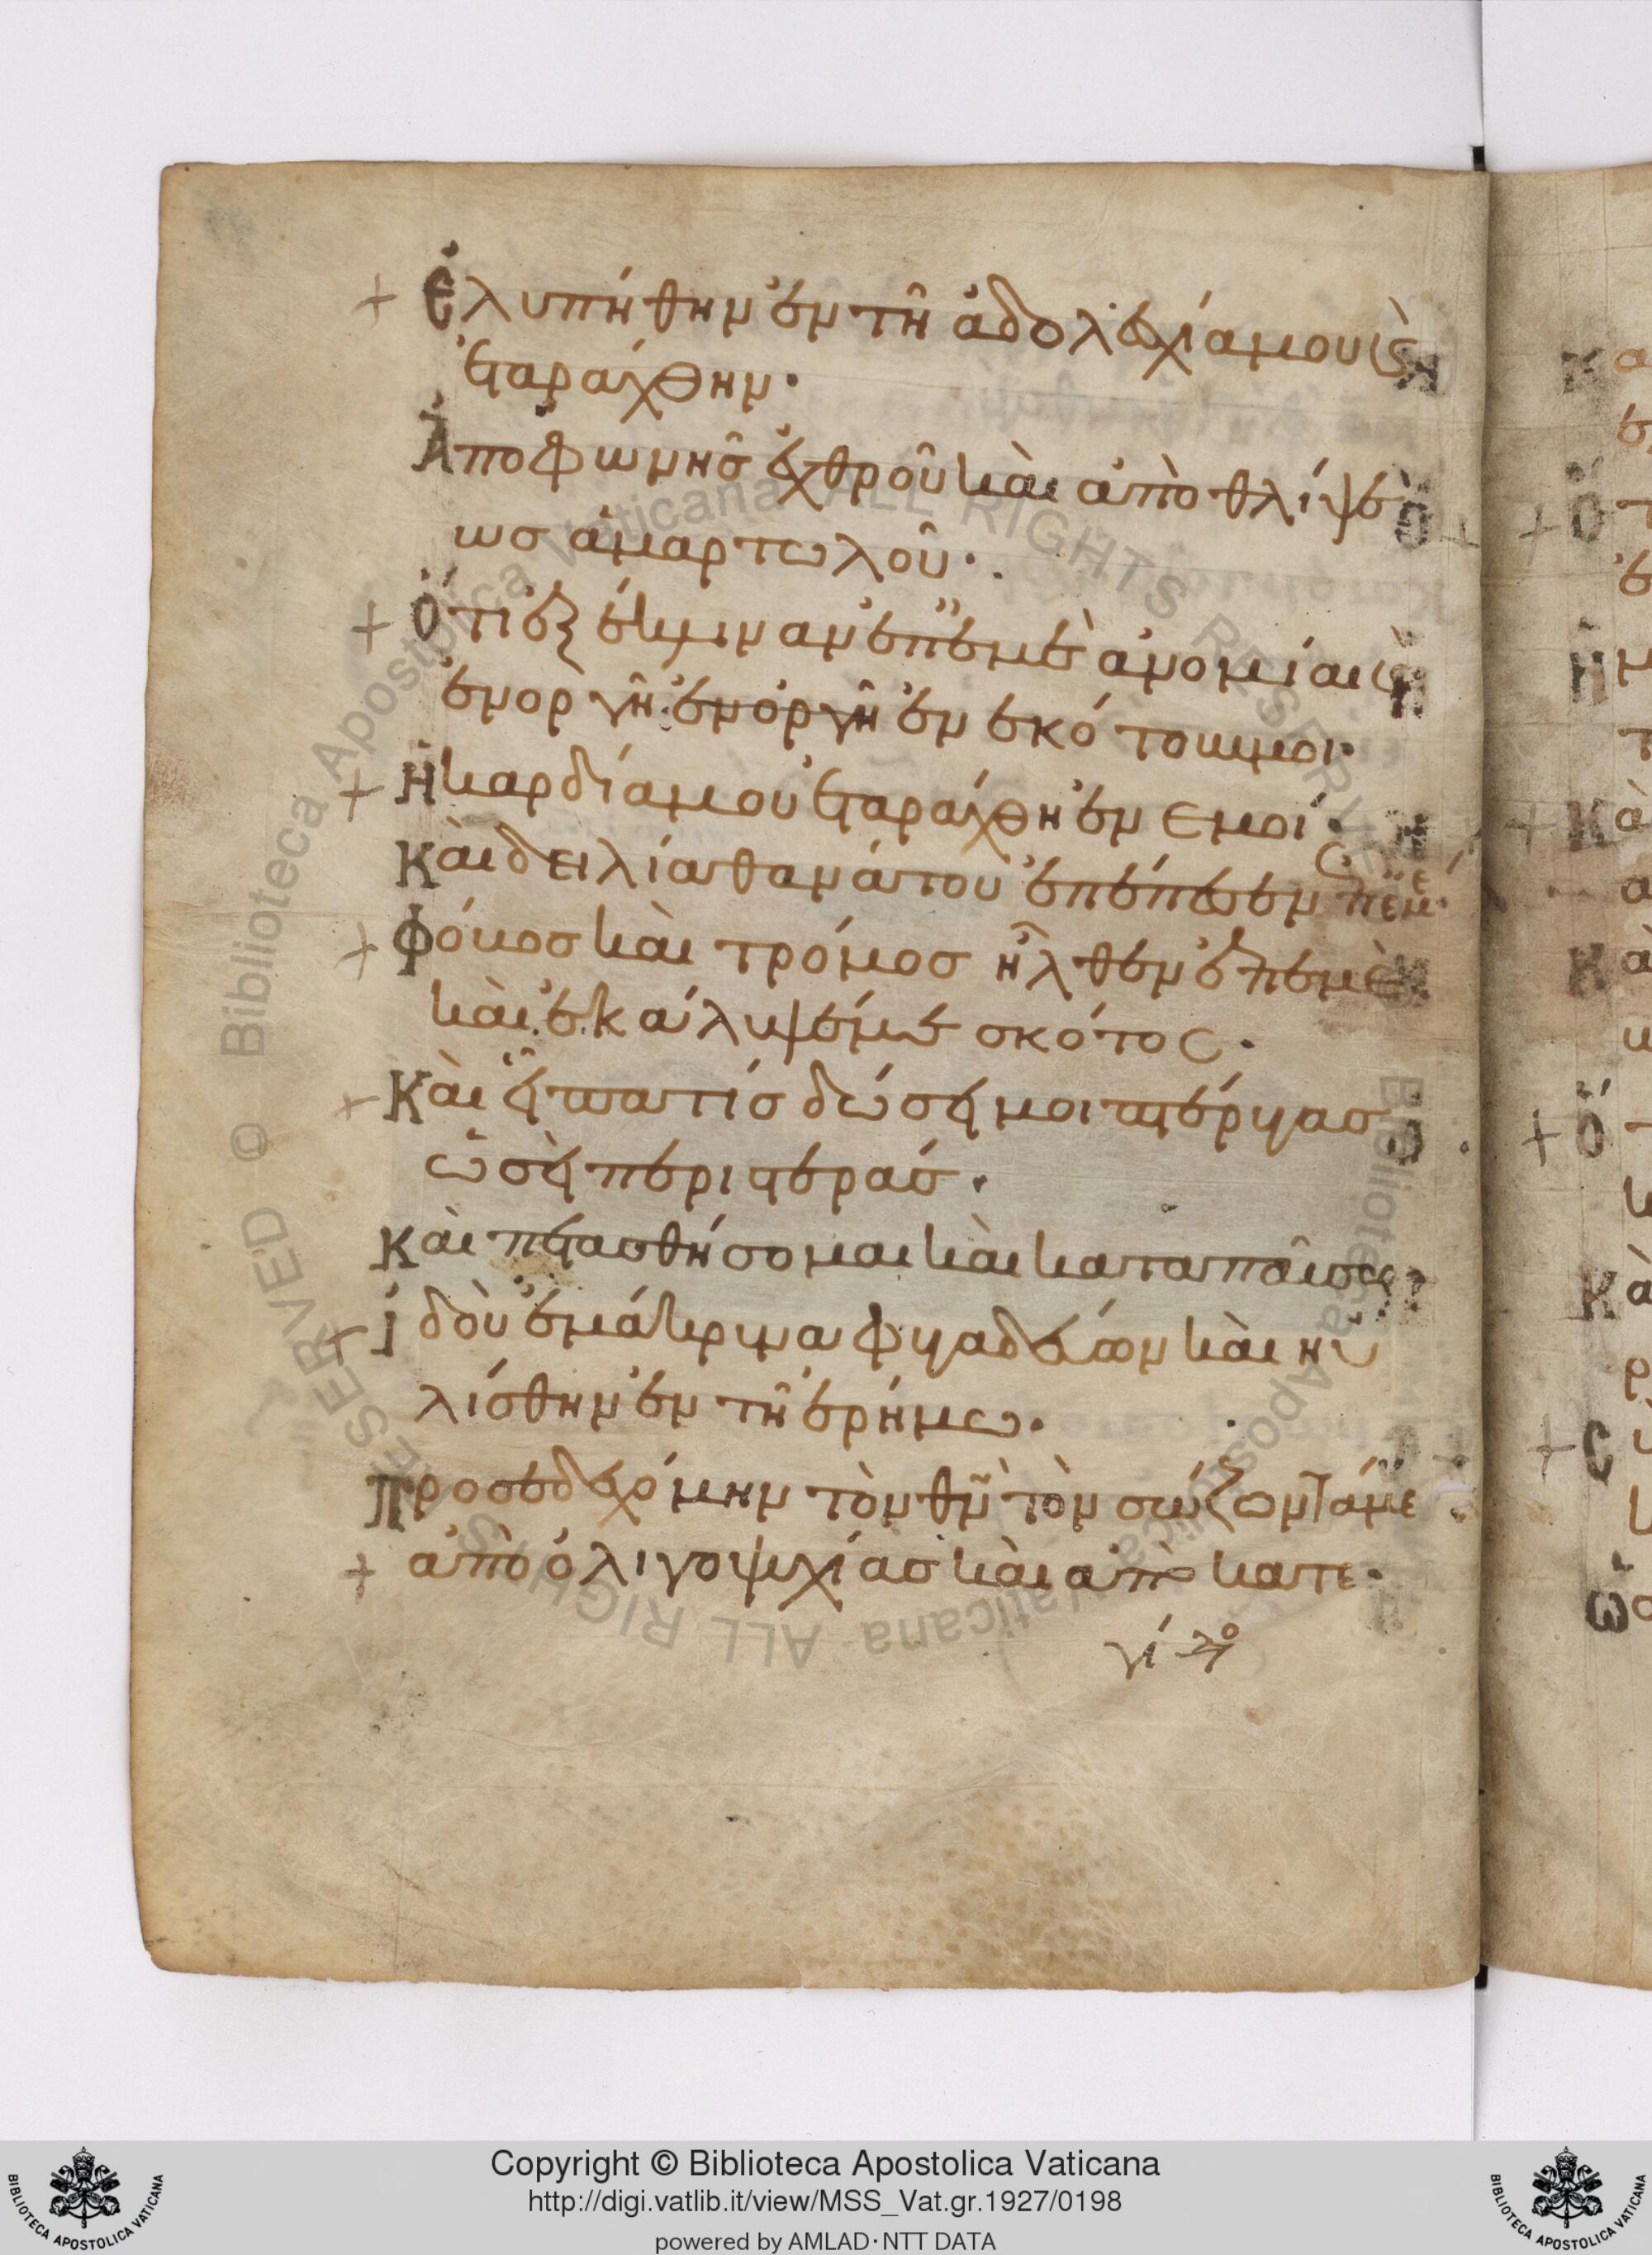 + Ἐλυπήθην ἐν τῆ ἀδολεσχία μου ϗ
ἐταράχθην·
Ἀπο φωνῆσ ἐχθροῦ καὶ ἀπὸ θλίψε
ωσ ἁμαρτωλοῦ·.
+ Ὅτι ἐξέκλιναν ἐπ' ἐμὲ ἀνομίαν ϗ
ἐν οργῆ· ἐν ὀργῆ ἐνεκότουν μοι·
+ Ἡ καρδία μου ἐταράχθη ἐν εμοί·
Καὶ δειλία θανάτου ἐπέπεσεν
+ Φόβοσ καὶ τρόμοσ ἦλθεν ἐπεμὲ
καὶ ἐκάλυψέ με σκότος·
+ Καὶ εἶπα τίσ δώσει μοι πτέρυγασ
ὡσεὶ περιστεράσ·
Καὶ πετασθήσομαι καὶ καταπαύσω
+ Ἰδοὺ ἐμάκρυνα φυγαδεύων καὶ ηὐ
λίσθην ἐν τῆ ἐρήμω·
Προσεδεχόμην τὸν θν̃ τὸν σώζοντά με
+ ἀπὸ ὀλιγοψυχίασ καὶ ἀπὸ κατε·
Copyright © Biblioteca Apostolica Vaticana
http://digi.vatlib.it/view/MSS_Vat.gr.1927/0198
powered by AMLAD·NTT DATA
BIBLIOTECA APOSTOLICA VATICANA
BIBLIOTECA APOSTOLICA VATICANA